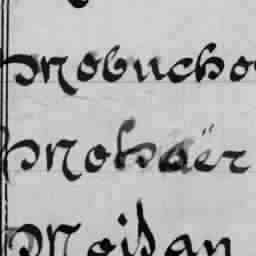 Mobucho
Mohaër
Moisan